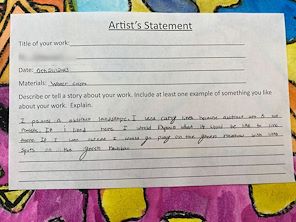 Artist's Statement
Title of your work:
Date: Oct/20/2023
Materials: Water colors
Describe or tell a story about your work. Include at least one example of something you like
about your work. Explain.
I painted a abstract landscape. I used curvy lines because abstract art is not
realistic. If I lived here I would what it would be like to live
there. If I was here I would go play on the green meadow with
spots in the green meadow